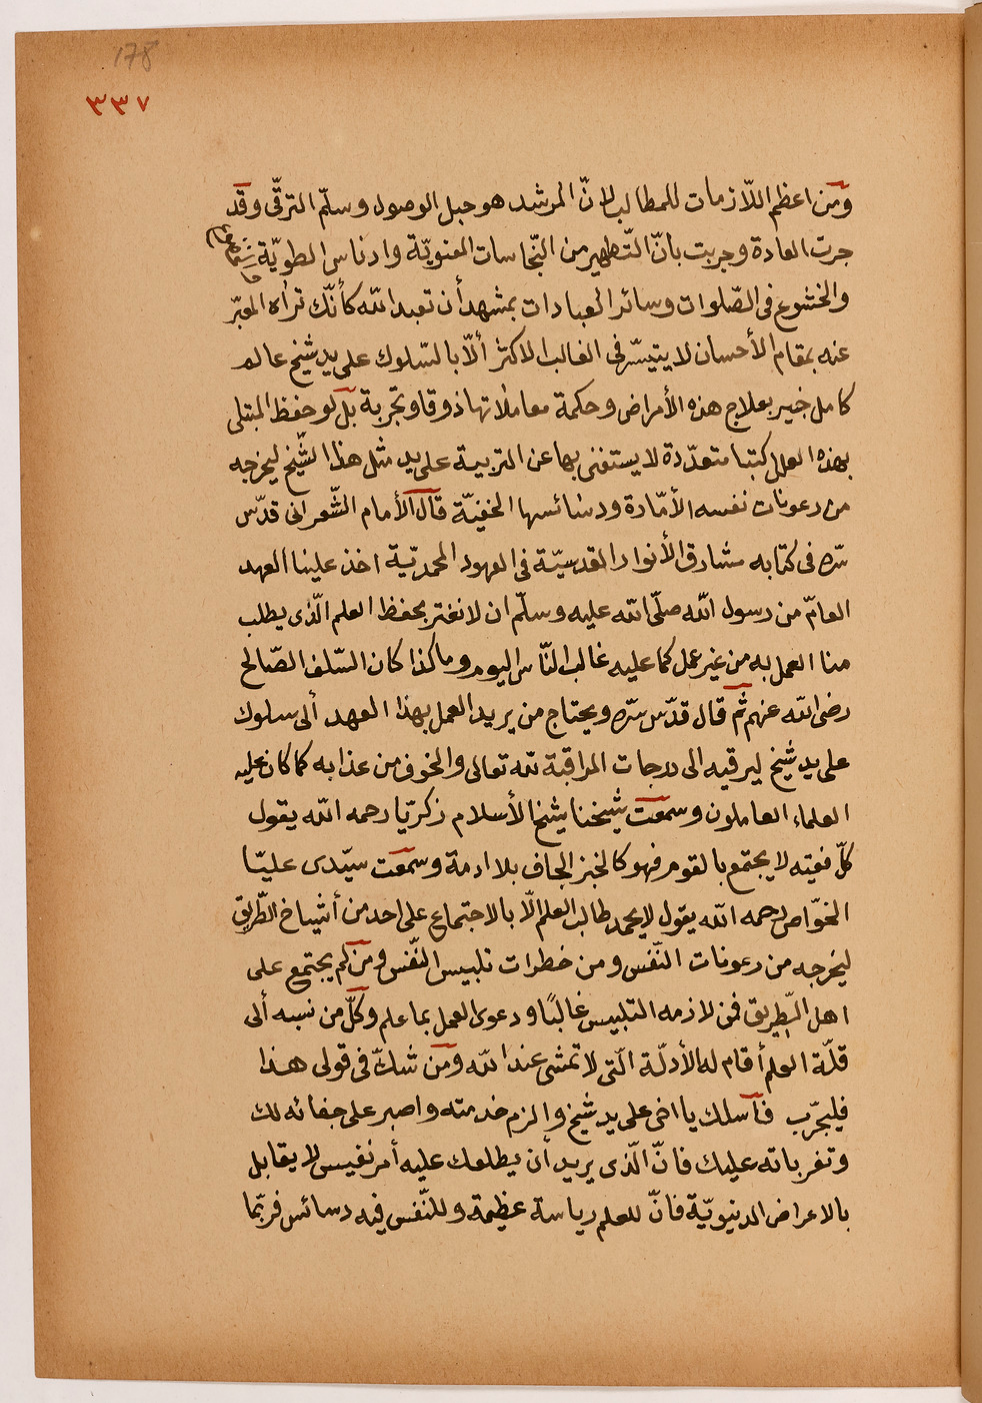 178
٣٣٧
ومن اعظم اللّازمات للمطالب لانّ المرشد هو حبل الوصول وسلّم الترقّى وقد
جرت العادة وجربت بانّ التّطهير من النّجاسات المعنويّة وادناس الطويّة
والخشوع فى الصّلوات وسائر العبادات بمشهد أن تعبد اللّه كأنّك تراه المعبّر
عنه بمقام الأحسان لا يتيسّر فى الغالب الاكثر ألّا بالسّلوك على يد شيخ عالم
كامل خبير بعلاج هذه الأمراض وحكمة معاملاتها ذوقا وتجربة بل لو حفظ المبتلى
بهذه العلل كتبا متعدّدة لا يستغنى بها عن التربية على يد مثل هذا الشّيخ ليخرجه
من رعونات نفسه الأمّارة ودسائسها الخفيّة قال الأمام الشّعرانى قدّس
سرّه فى كتابه مشارق الأنوار القدسيّة فى العهود المحمديّة اخذ علينا العهد
العامّ من رسول اللّه صلّى اللّه عليه وسلّم ان لا نغتر بحفظ العلم الّذى يطلب
منا العمل به من غير عمل كما عليه غالب النّاس اليوم وما كذا كان السّلف الصّالح
رضى اللّه عنهم ثم قال قدّس سرّه ويحتاج من يريد العمل بهذا العهد ألى سلوك
على يد شيخ ليرقيه الى درجات المراقبة للّه تعالى والخوف من عذابه كما كان عليه
العلماء العاملون وسمعت شيخنا شيخ الأسلام زكريّا رحمه اللّه يقول
كلّ فقيه لا يجتمع بالقوم فهو كالخبز الجاف بلا ادمة وسمعت سيّدى عليّا
الخوّاص رحمه اللّه يقول لا يحمد طالب العلم الّا بالاجتماع على احد من أشياخ الطّريق
ليخرجه من رعونات النّفس ومن خطرات تلبيس النّفس ومن لم يجتمع على
اهل الطّريق فمن لازمه التلبيس غالبًا ودعوى العمل بما علم وكلّ من نسبه ألى
قلّة العلم أقام له الأدلّة الّتى لا تمشى عند اللّه ومن شكّ فى قولى هذا
فليجرّب فاسلك يا اخى على يد شيخ والزم خدمته واصبر على جفائه لك
وتغرباته عليك فانّ الّذى يريد أن يطلعك عليه أمر نفيس لا يقابل
بالاعراض الدنيويّة فانّ للعلم رياسة عظيمة وللنّفس فيه دسائس فربّما